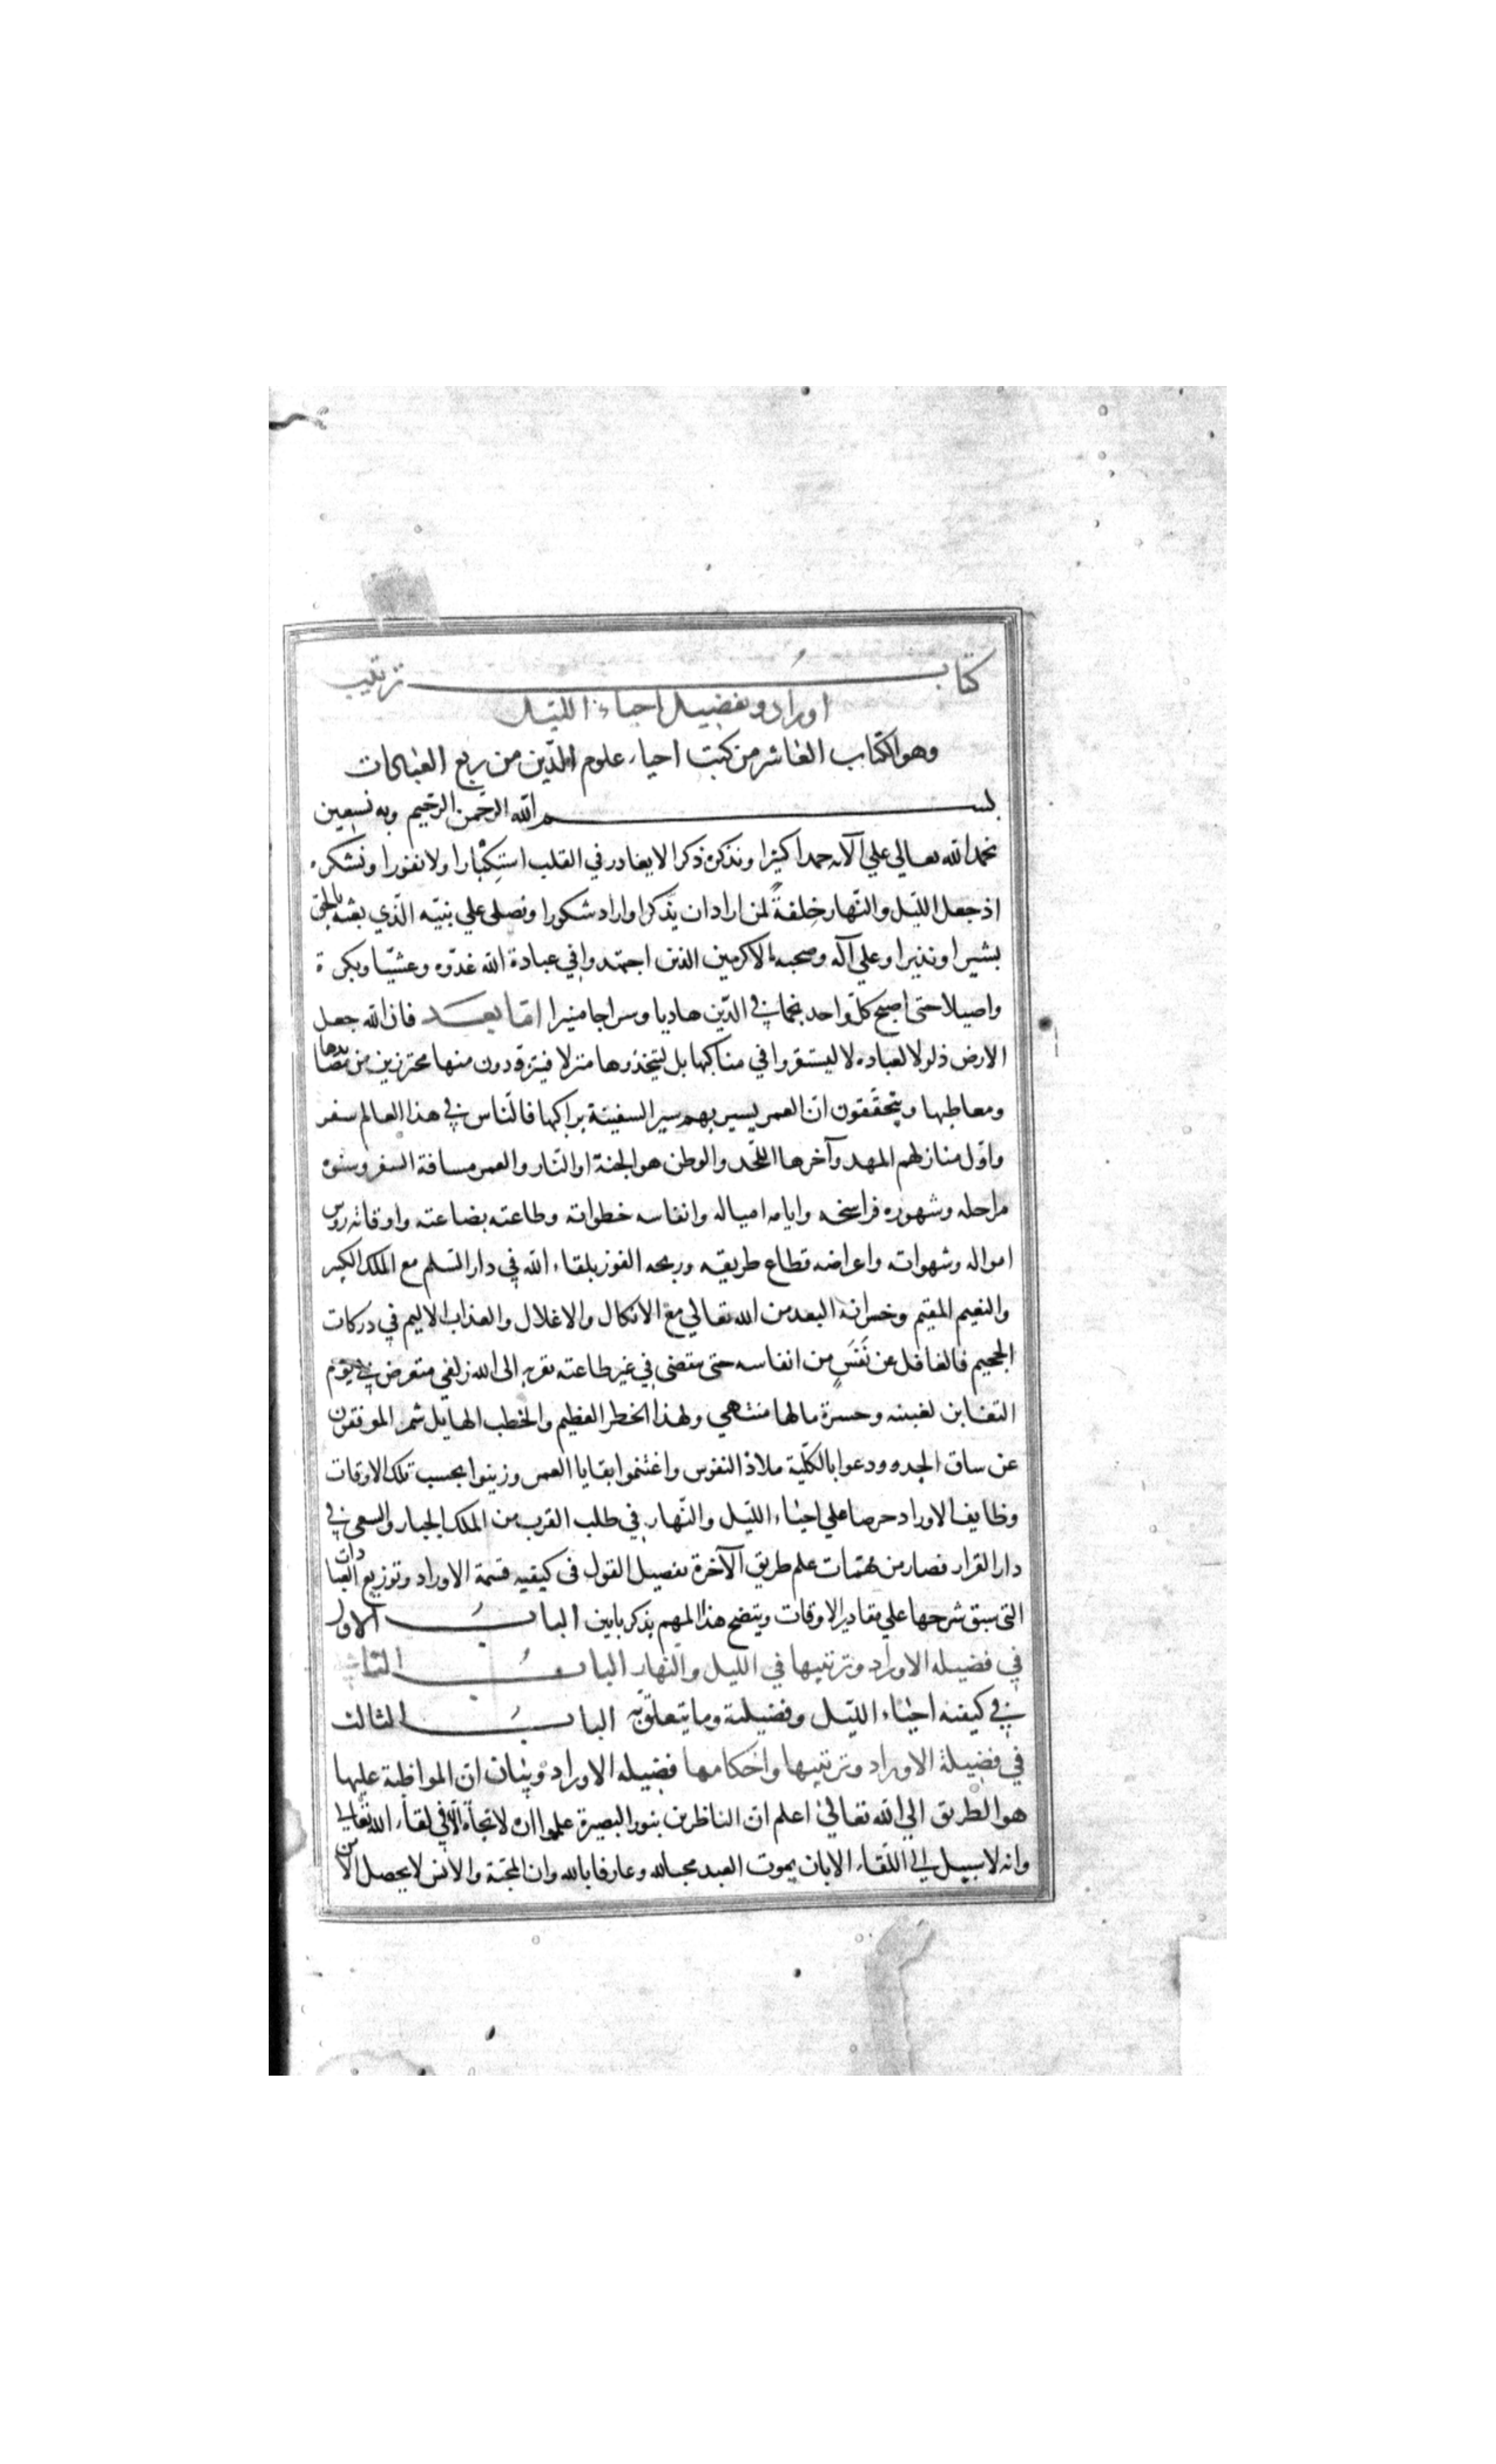 كتاب ترتيب
اوراد وتفضيل احياء الليل
وهو الكتاب العاشر من كتب احياء علوم الدّين من ربع العبادات
بسم الله الرحمن الرحيم وبه نستعين
نحمد الله تعالي علي آلائه حمدا كثيرا ونذكره ذكرا لا يغادر في القلب استكبارا ولا نفورا ونشكره
اذ جعل الليل والنّهار خِلفةً لمن اراد ان يذّكر او اراد شكورا ونصلي علي نبيّه الّذي بعثه بالحق
بشيرا ونذيرا وعلي آله وصحبه الاكرمين الذين اجتهدوا في عبادة الله غدوّه وعشيّا وبكرة
واصيلا حتى اصبح كلّ واحد نجما في الدّين هاديا وسراجا منيرا امّا بعد فان الله جعل
الارض ذلولا لعباده لا ليستقروا في مناكبها بل ليتخذوها منزلا فيتزودون منها محترزين من مصايدها
ومعاطبها ويتحقّقون انّ العمر يسير بهم سير السفينة براكبها فالنّاس في هذا العالم سفر
واوّل منازلهم المهد وآخرها اللّحد والوطن هو الجنة او النّار والعمر مسافة السفر وسنوه
مراحله وشهوره فراسخه وايامه امياله وانفاسه خطواته وطاعته بضاعته واوقاته روس
امواله وشهواته واعراضه قطاع طريقه وربحه الفوز بلقاء الله في دار السّلم مع الملك الكبير
والنعيم المقيم وخسرانه البعد من الله تعالي مع الانكال والاغلال والعذاب الاليم في دركات
الجحيم فالغافل عن نَفَسٍ من انفاسه حتى ينقضى في غير طاعته تقربه الى الله زلفي متعرض في يوم
التغابن لغبينه وحسرة مالها منتهي ولهذا الخطر العظيم والخطب الهايل شمر الموفقون
عن ساق الجد وودعوا بالكلّية ملاذ النفوس واغتنموا بقايا العمر وزينوا بحسب تلك الاوقات
وظايف الاوراد حرصا علي احياء الليل والنّهار في طلب القرب من الملك الجبار والسعى في
دار القرار فصار من مهمّات علم طريق الآخرة تفصيل القول فى كيفيه قسمة الاوراد وتوزيع العبادات
التى سبق شرحها علي مقادير الاوقات ويتضح هذا المهم بذكر بابين الباب الاول
في فضيله الاوراد وترتيبها في الليل والنهار الباب الثاني
في كيفية احياء الليل وفضيلته وما يتعلق به الباب الثالث
في فضيلة الاوراد وترتيبها واحكامها فضيله الاوراد وبيان ان المواظبة عليها
هو الطريق الي الله تعالي اعلم ان الناظرين بنور البصيرة علموا انه لا نجاة الّا في لقاء الله تعالي
وانه لا سبيل الي اللّقاء الا بان يموت العبد محبا لله وعارفا بالله وان المحبّة والانس لا يحصل الا من